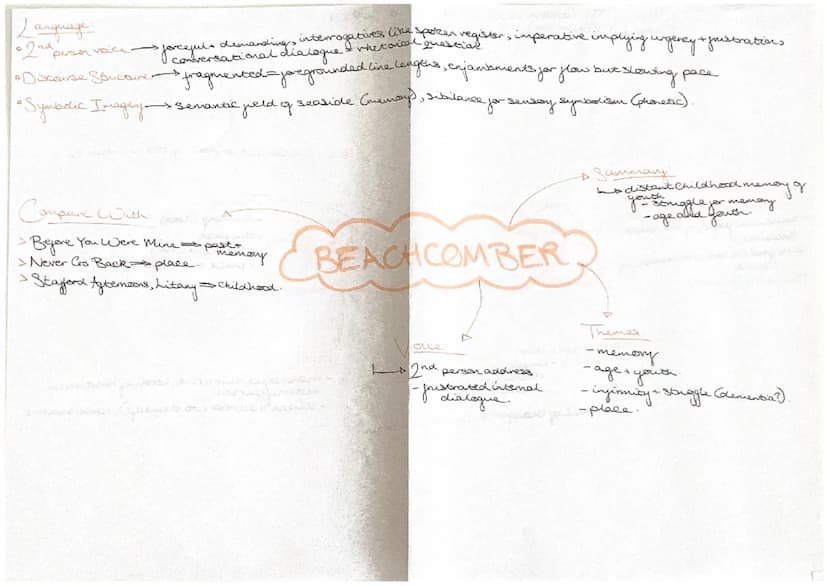 Language:
• 2nd person voice → forceful + demanding, interrogatives like spoken register, imperative implying urgency + frustration,
conversational dialogue + rhetorical question
• Discourse Structure → fragmented = foregrounded line lengths, enjambments for flow but slowing pace
• Symbolic Imagery → semantic field of seaside (memory), sibilance for sensory symbolism (phonetic).
Summary
↳ distant childhood memory of
youth
- struggle for memory
- age and youth.
Compare With
> Before You Were Mine ⇒ past +
memory
> Never Go Back ⇒ place.
> Stafford Afternoons, Litany ⇒ Childhood.
BEACHCOMBER
Voice
↳ 2nd person address
- frustrated internal
dialogue.
Themes
- memory
- age + youth
- infirmity + struggle (dementia?).
- place.